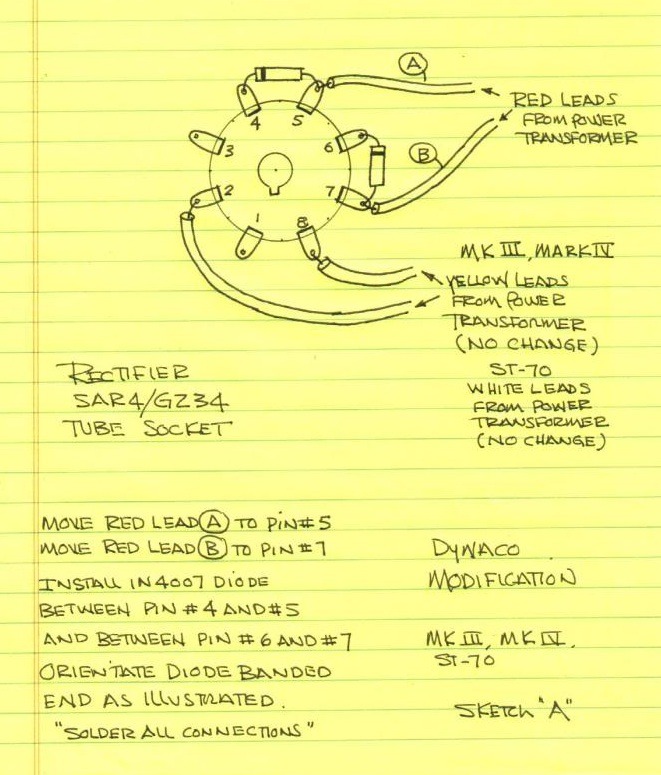 A
RED LEADS
FROM POWER
TRANSFORMER
B
4
5
3
6
2
7
1
8
MK III, MARK IV
YELLOW LEADS
FROM POWER
TRANSFORMER
(NO CHANGE)
ST-70
WHITE LEADS
FROM POWER
TRANSFORMER
(NO CHANGE)
RECTIFIER
5AR4/GZ34
TUBE SOCKET
MOVE RED LEAD A TO PIN #5
MOVE RED LEAD B TO PIN #7
INSTALL IN4007 DIODE
BETWEEN PIN #4 AND #5
AND BETWEEN PIN #6 AND #7
ORIENTATE DIODE BANDED
END AS ILLUSTRATED.
"SOLDER ALL CONNECTIONS"
DYNACO
MODIFICATION
MK III, MK IV,
ST-70
SKETCH "A"